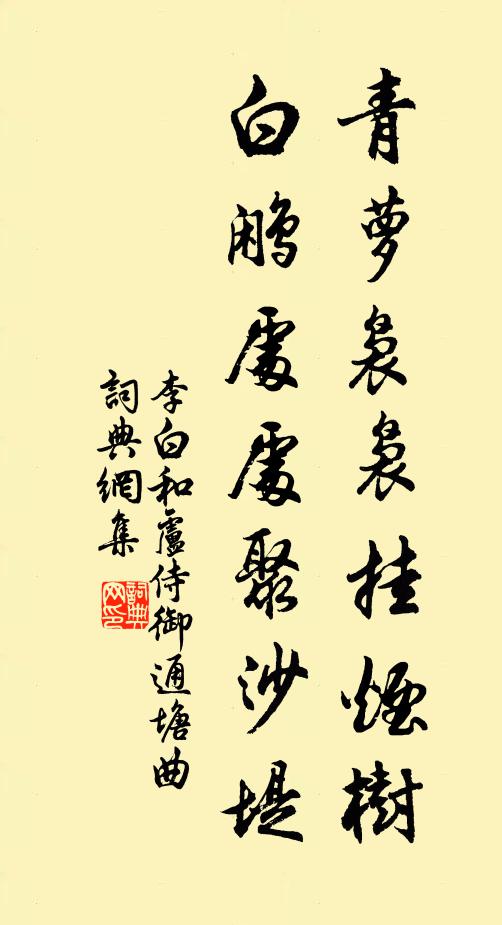 青蘿裊裊挂煙樹
白鷳處處聚沙堤
李白和盧侍御通塘曲
詞典網集
詞典網印